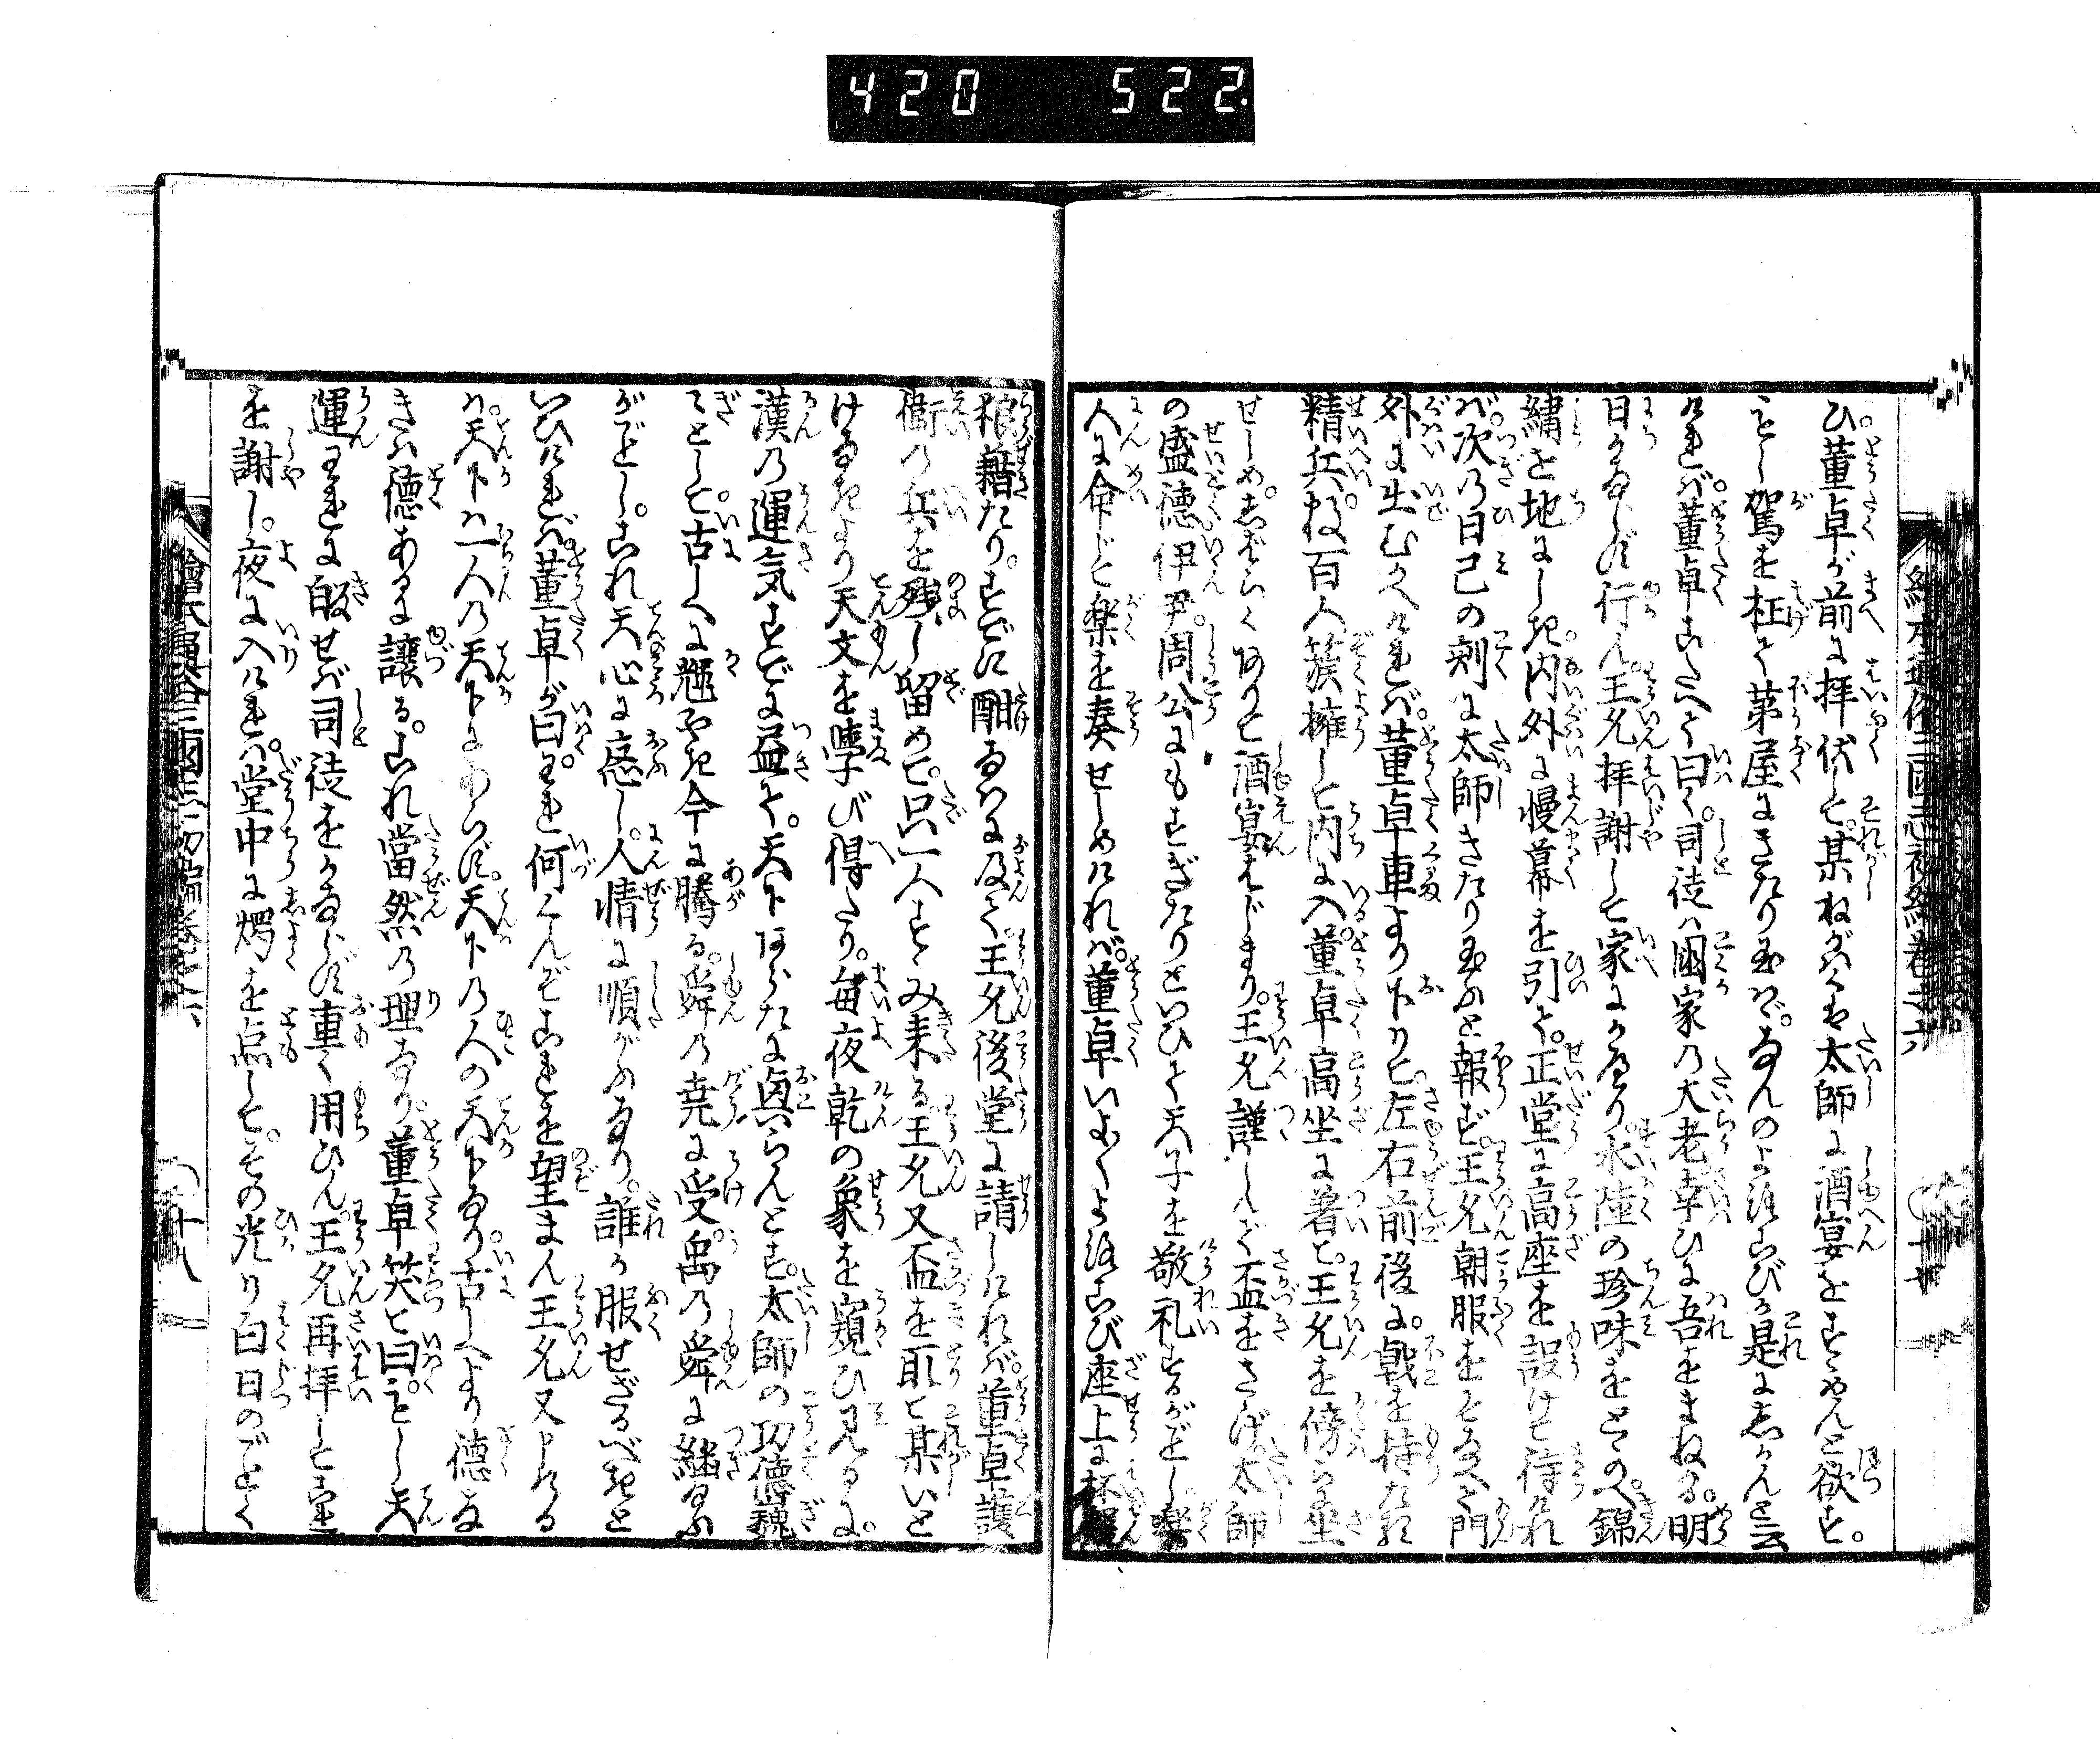 420 522
繪本通俗三國志初編巻之六
ひ。董卓が前に拝伏して。某ねがはくは太師に酒宴をすゝめんと欲す。
もし駕を枉て茅屋にきたり玉はゞ。なんのよろこびか是にしかんと云
ければ。董卓こたへて曰く。司徒は國家の大老幸ひに吾をまねる。明
日かならず行ん。王允拝謝して家にかへり。水陸の珍味をとゝのへ。錦
繍を地にしき。内外に幔幕を引て。正堂に高座を設けて待けれ
ば。次の日巳の刻に太師きたり玉ふと報ず。王允朝服をとゝのへて門
外に出むかへければ。董卓車より下りて。左右前後に。戟を持たる
精兵。数百人簇擁して内に入。董卓高坐に着て。王允を傍らに坐
せしめ。しばらくありて酒宴はじまり。王允謹しんで盃をさゝげ。太師
の盛徳伊尹。周公にもすぎたりといひて天子を敬礼するがごとし楽
人に命じて楽を奏せしめければ。董卓いよ〱よろこび座上に杯盤
狼藉たり。すでに酣なはに及て。王允後堂に請しければ。董卓護
衛の兵を残し留めて。只一人すゝみ来る王允又盃を取て某いと
けなきより天文を學び得たり。毎夜乾の象を窺ひ見るに。
漢の運気すでに盡て。天下あらたに興らんとす。太師の功徳巍
〻として。古しへに趐やき今に騰る。舜の堯に受。禹の舜に継たまふ
がごとし。これ天心に應じ。人情に順がふなり。誰か服せざるべきと
いひければ。董卓が曰。われ何くんぞこれを望まん王允又申ける
は。天下は一人の天下にあらず。天下の人の天下なり。古しへより徳な
きは徳あるに譲る。これ當然の理なり。董卓笑て曰。もし天
運われに皈せば司徒をかならず重く用ひん。王允再拝して宴
を謝し。夜に入ければ。堂中に燭を点して。その光り白日のごとく
繪本通俗三國志初編巻之六
十八